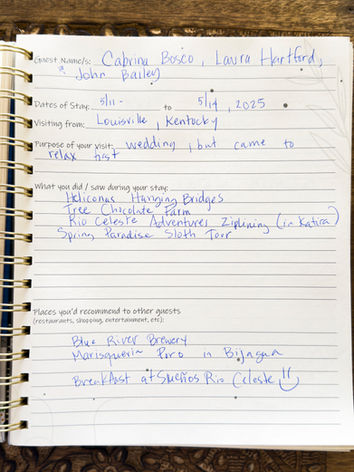 Guest Name/s: Cabrina Bosco, Laura Hartford,
& John Bailey
Dates of Stay: 5/11 - to 5/14, 2025
Visiting from: Louisville, Kentucky
Purpose of your visit: wedding, but came to
relax first
What you did / saw during your stay:
Heliconas Hanging Bridges
Tree Chocolate Farm
Rio Celeste Adventures Ziplining (in Katira)
Spring Paradise Sloth Tour
Places you'd recommend to other guests
(restaurants, shopping, entertainment, etc):
Blue River Brewery
Marisqueria Poro in Bijagua
Breakfast at Sueños Rio Celeste